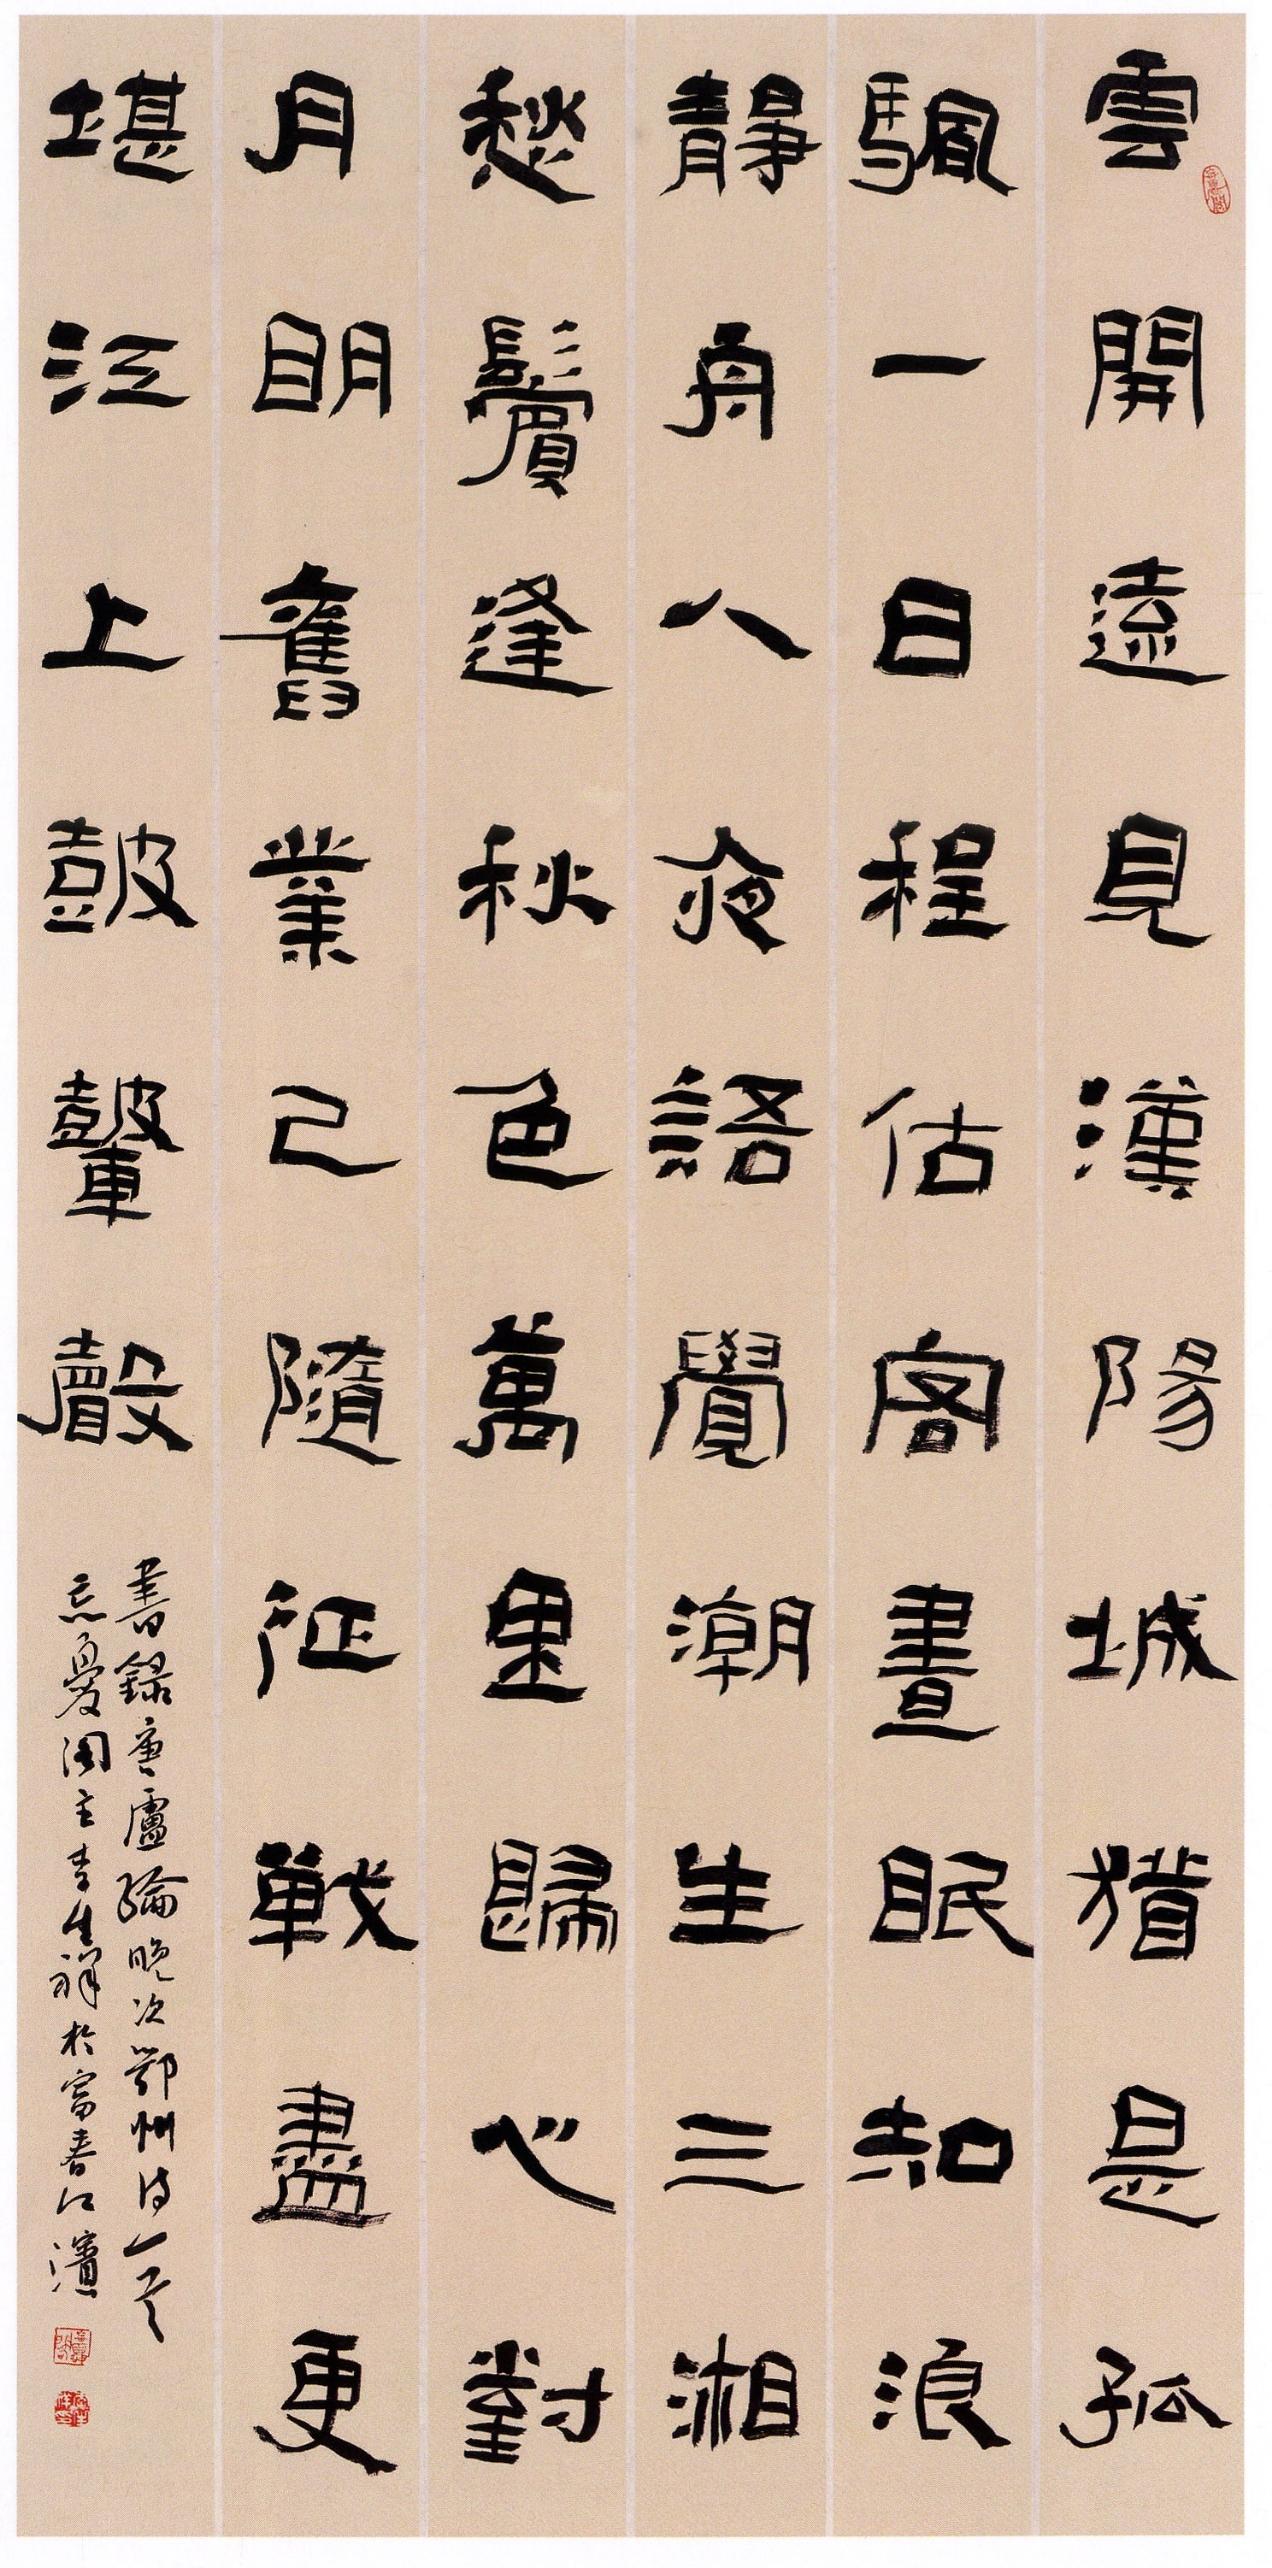 雲開遠見漢陽城猶是孤
颿一日程估客晝眠知浪
靜舟人夜語覺潮生三湘
愁鬢逢秋色萬里歸心對
月眀舊業已隨征戰盡更
堪江上皷鼙聲
書錄唐盧綸晚次鄂州詩一首
忘憂閣主李生祥於富春江濱